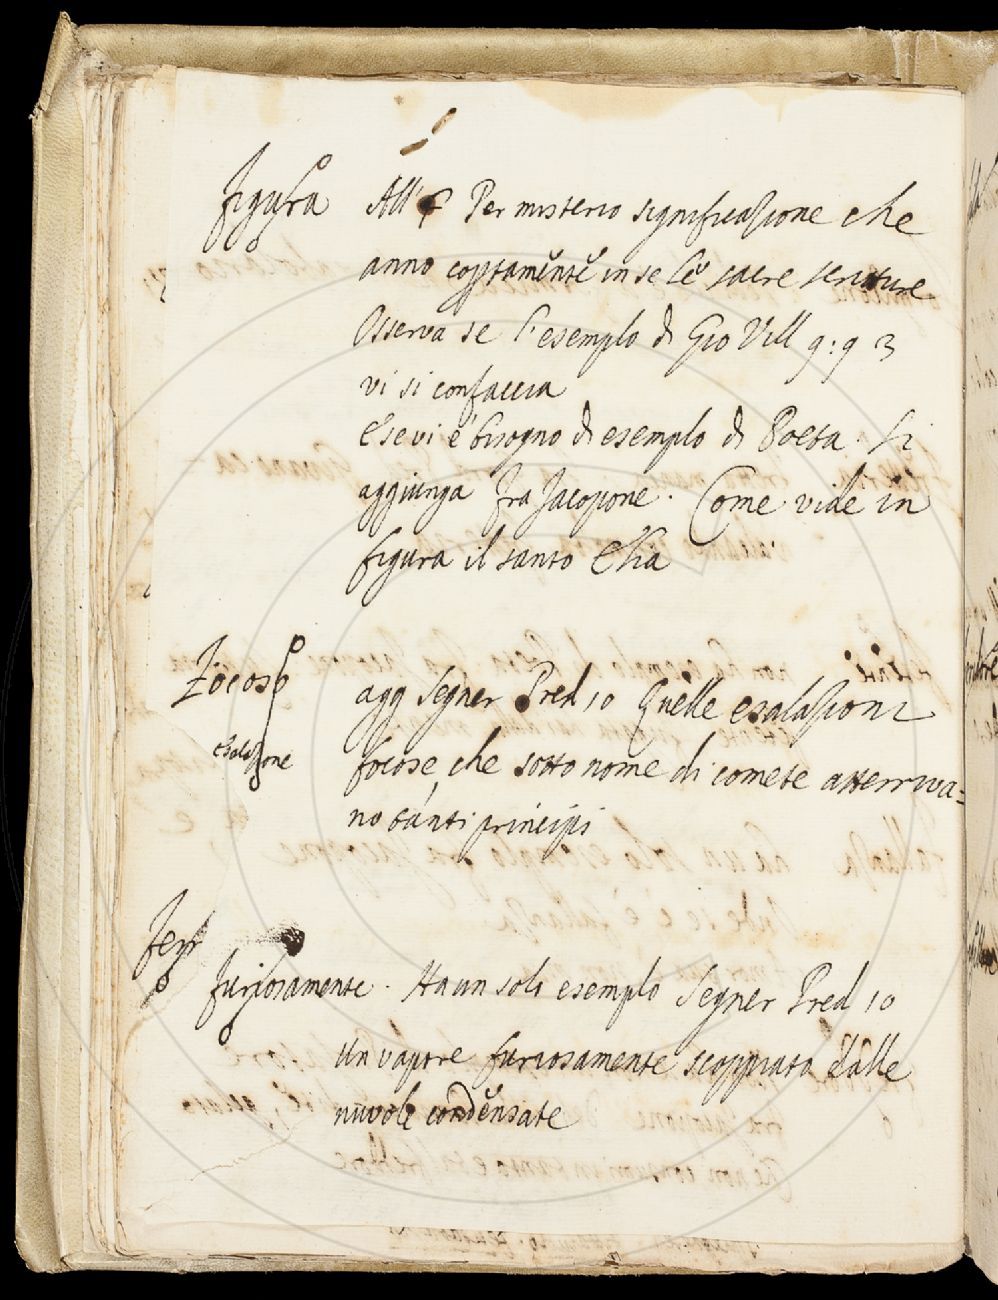 figura All' § Per misterio significazione che
anno copertamente in se le sacre scritture
Osserva se l'esemplo di Gio Vill 9:93
vi si confaccia
e se vi è bisogno di esemplo di Poeta. Si
aggiunga fra Jacopone. Come vide in
figura il santo Elia
Focoso agg Segner Pred 10 Quelle esalazioni
esalazione focose, che sotto nome di comete atterriva=
no tanti principi
furiosamente. Ha un solo esemplo Segner Pred 10
Un vapore furiosamente scoppiato dalle
nuvole condensate